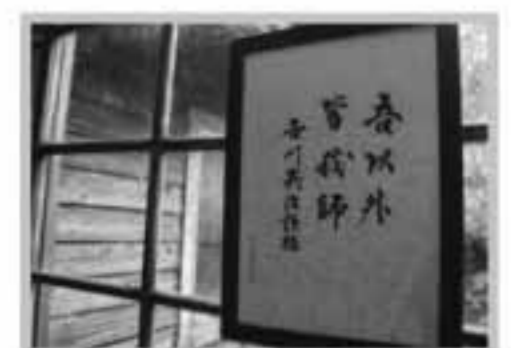 吾以外
皆我師
吉川英治